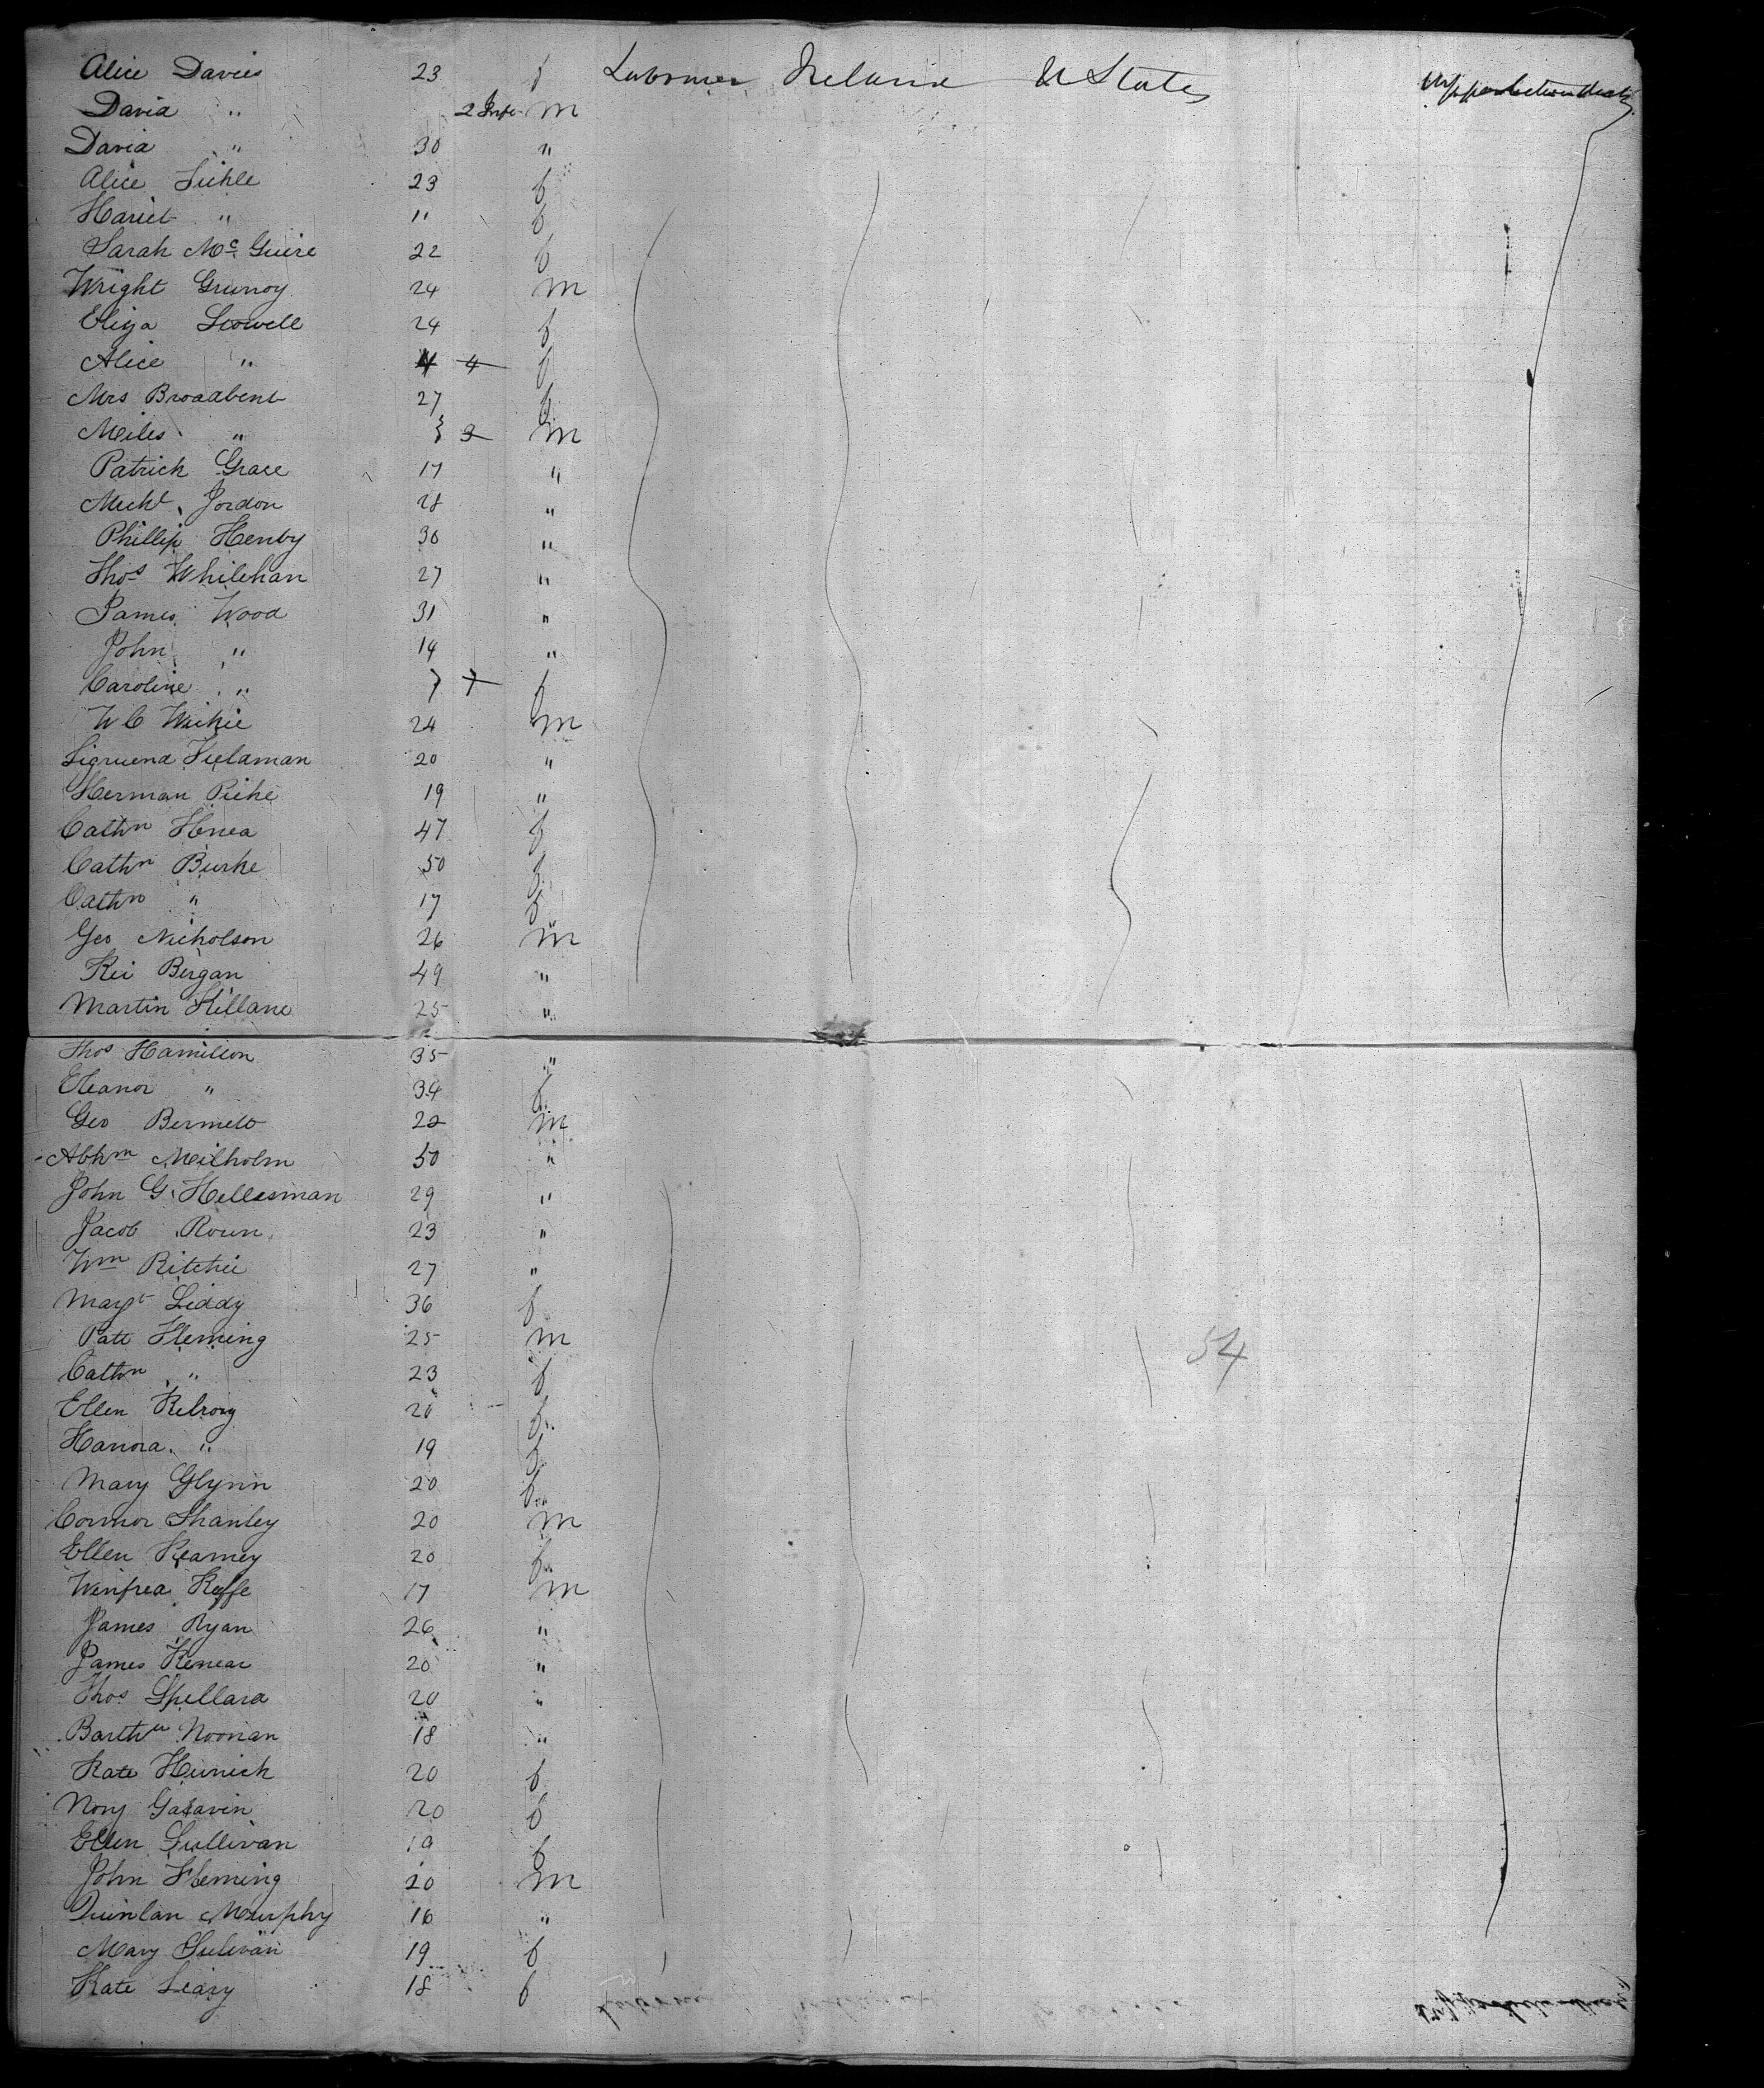 Alice Davies 23 f Labourer Ireland U States
David " 2 Inft m
David " 30 "
Alice 23 f
Hariet " 11 f
Sarah Mc Guire 22 f
Wright 24 m
Eliza 24 f
Alice " 4 4 f
Mrs Broadbent 27 f
Miles " 3 m
Patrick Grace 17 "
Michl Jordon 28 "
Phillip Henby 30 "
Thos Whilehan 27 "
James Wood 31 "
John " 14 "
Caroline " 7 7 f
W C 24 m
20 "
Herman 19 "
Cathn 47 f
Cathn Burke 50 f
Cathn " 17 f
Geo Nicholson 26 m
Bergan 49 "
Martin Killane 25 "
Thos Hamilton 35 "
Eleanor " 34 f
Geo 22 m
Abhm Milholm 50 "
John G. Hellesman 29 "
Jacob 23 "
Wm Ritchie 27 "
Margt Liddy 36 f
Patt Fleming 25 m
Cathn " 23 f
54
Ellen 20 f
Hanora " 19 f
Mary Glynn 20 f
Connor Shanley 20 m
Ellen Kearney 20 f
Winfred 17 m
James Ryan 26 "
James 20 "
Thos 20 "
Noonan 18 "
Kate 20 f
20 f
Ellen Sullivan 19 f
John Fleming 20 m
Quinlan Murphy 16 "
Mary Sulivan 19 f
Kate Leary 18 f